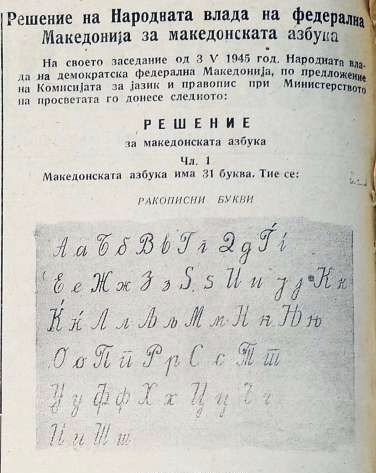 Решение на Народната влада на федерална
Македонија за македонската азбука
На своето заседание од 3 V 1945 год. Народната вла-
да на демократска федерална Македонија, по предложение
на Комисијата за јазик и правопис при Министерството
на просветата го донесе следното:
РЕШЕНИЕ
за македонската азбука
Чл. 1
Македонската азбука има 31 буква. Тие се:
РАКОПИСНИ БУКВИ
А а Б б В в Г г Д д Ѓ ѓ
Е е Ж ж З з Ѕ ѕ И и Ј ј К к
Ќ ќ Л л Љ љ М м Н н Њ њ
О о П п Р р С с Т т
У у Ф ф Х х Ц ц Ч ч
Џ џ Ш ш